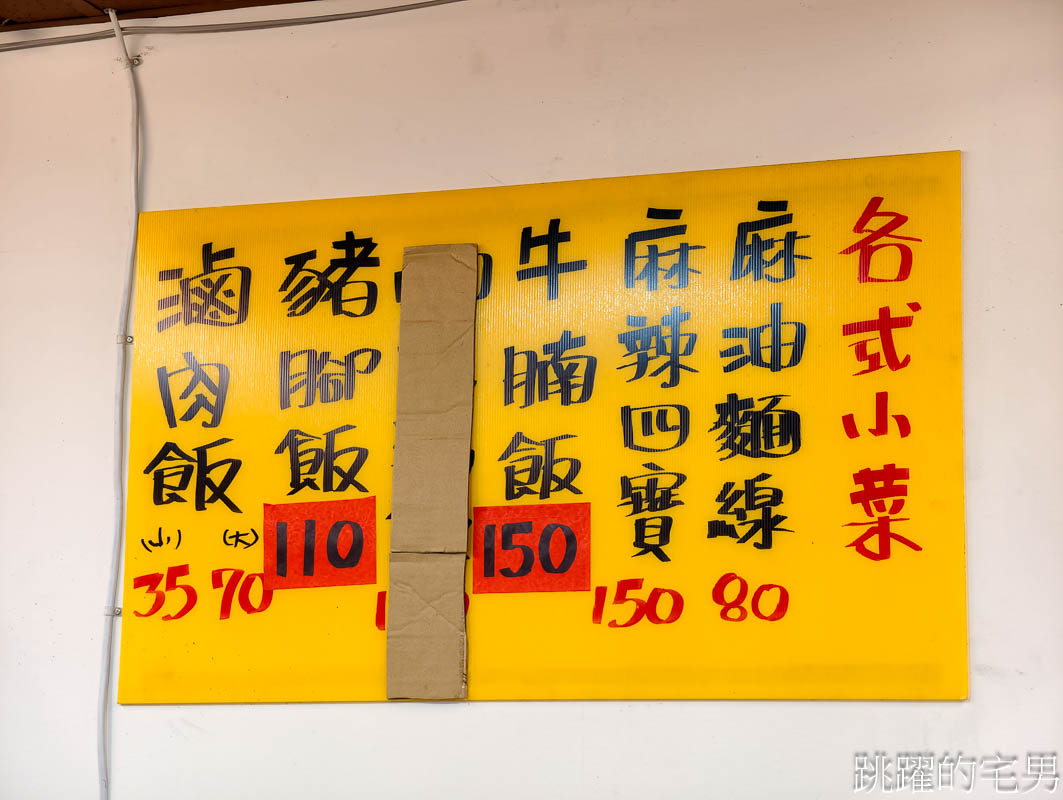 各式小菜
麻油麵線
80
麻辣四寶
150
牛腩飯
150
豬腳飯
110
滷肉飯
(小) (大)
35 70
跳躍的宅男